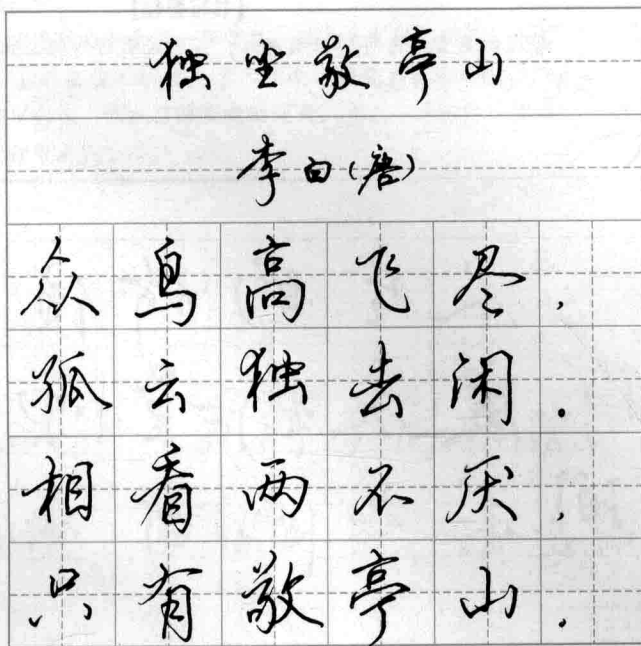 独坐敬亭山
李白(唐)
众鸟高飞尽,
孤云独去闲.
相看两不厌,
只有敬亭山.